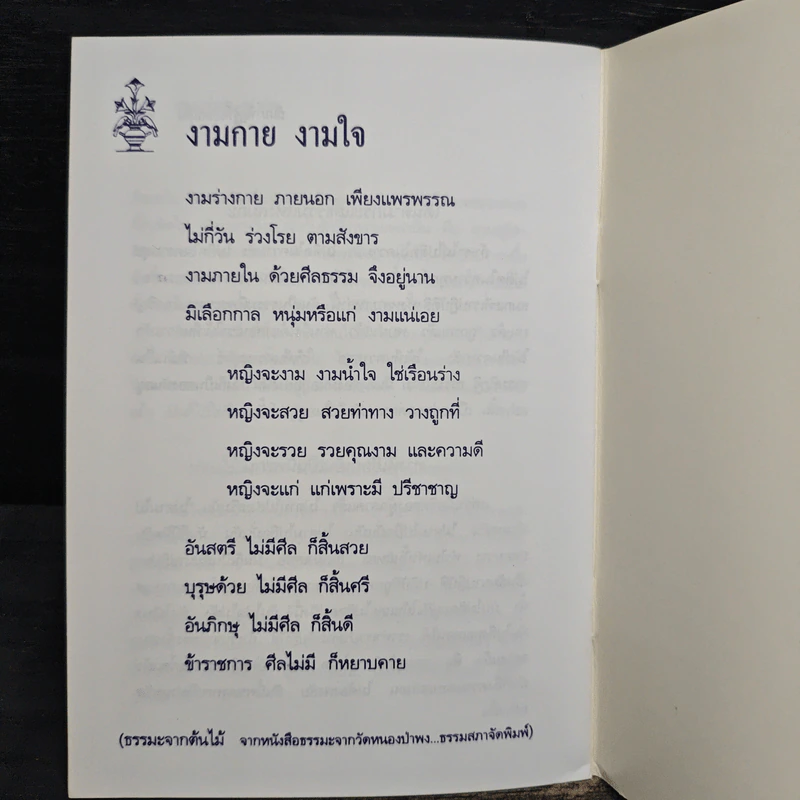 งามกาย งามใจ
งามร่างกาย ภายนอก เพียงแพรพรรณ
ไม่กี่วัน ร่วงโรย ตามสังขาร
งามภายใน ด้วยศีลธรรม จึงอยู่นาน
มิเลือกกาล หนุ่มหรือแก่ งามแน่เอย
หญิงจะงาม งามน้ำใจ ใช่เรือนร่าง
หญิงจะสวย สวยท่าทาง วางถูกที่
หญิงจะรวย รวยคุณงาม และความดี
หญิงจะแก่ แก่เพราะมี ปรีชาชาญ
อันสตรี ไม่มีศีล ก็สิ้นสวย
บุรุษด้วย ไม่มีศีล ก็สิ้นศรี
อันภิกษุ ไม่มีศีล ก็สิ้นดี
ข้าราชการ ศีลไม่มี ก็หยาบคาย
(ธรรมะจากต้นไม้ จากหนังสือธรรมะจากวัดหนองป่าพง...ธรรมสภาจัดพิมพ์)